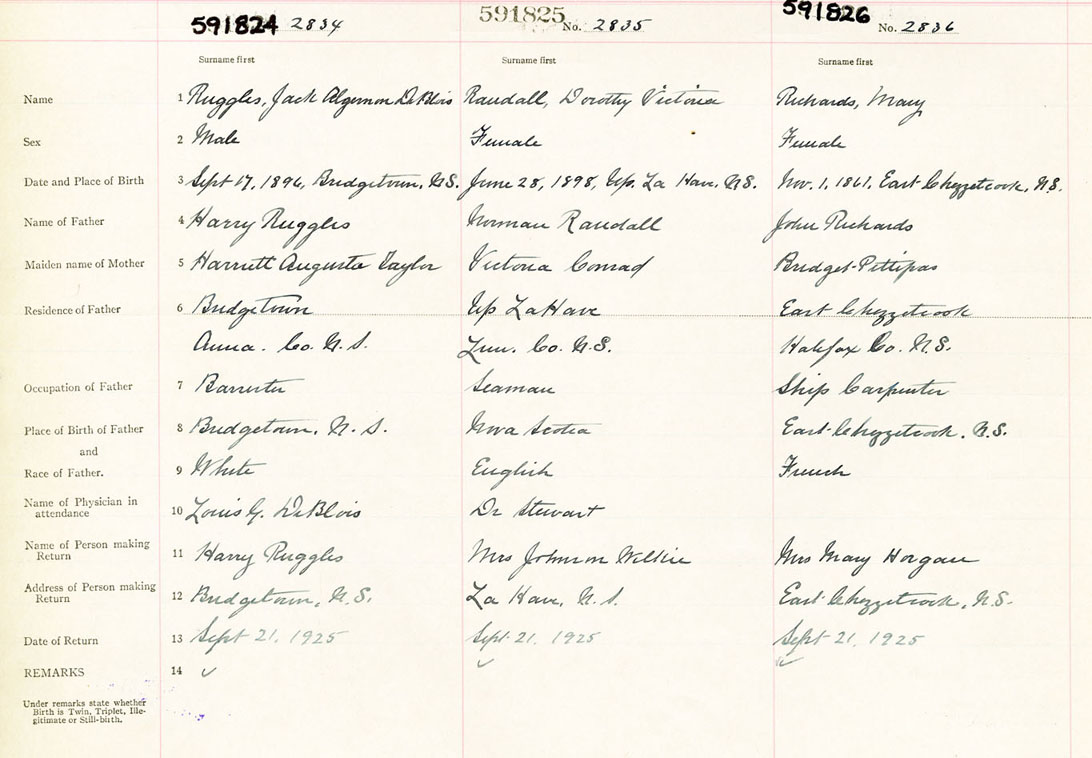 591824 2834 591825 No. 2835 591826 No. 2836
Surname first Surname first Surname first
Name 1 Ruggles, Jack Algernon DeBlois Randall, Dorothy Victoria Richards, Mary
Sex 2 Male Female Female
Date and Place of Birth 3 Sept 17, 1896, Bridgetown, N.S. June 28, 1898, Up. La Have, N.S. Nov. 1, 1861, East Chezzetcook, N.S.
Name of Father 4 Harry Ruggles Norman Randall John Richards
Maiden name of Mother 5 Harriett Augusta Taylor Victoria Conrad Bridget Pettipas
Residence of Father 6 Bridgetown Up LaHave East Chezzetcook
Anna. Co. N.S. Lun. Co. N.S. Halifax Co. N.S.
Occupation of Father 7 Barrister Seaman Ship Carpenter
Place of Birth of Father 8 Bridgetown, N.S. Nova Scotia East Chezzetcook, N.S.
and
Race of Father. 9 White English French
Name of Physician in
attendance 10 Louis G. DeBlois Dr Stewart
Name of Person making
Return 11 Harry Ruggles Mrs Johnson Wilkie Mrs Mary Horgan
Address of Person making
Return 12 Bridgetown, N.S. La Have, N.S. East Chezzetcook, N.S.
Date of Return 13 Sept 21, 1925 Sept. 21, 1925 Sept 21, 1925
REMARKS 14
Under remarks state whether
Birth is Twin, Triplet, Ille-
gitimate or Still-birth.